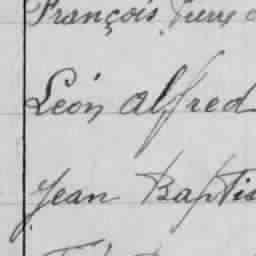 François Pierre
Léon Alfred
Jean Baptis